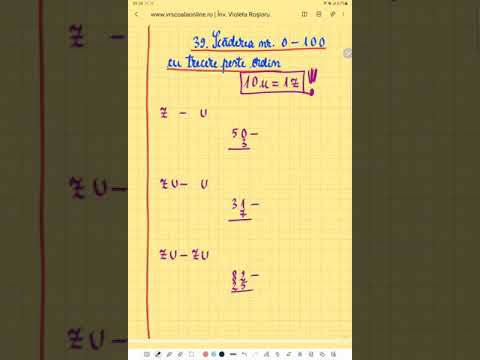 www.vrscoalaonline.ro | Înv. Violeta Roșioru
39. Scăderea nr. 0-100
cu trecere peste ordin
10u=1z !
Z - U
50-
3
ZU- U
31-
7
ZU-ZU
82-
25